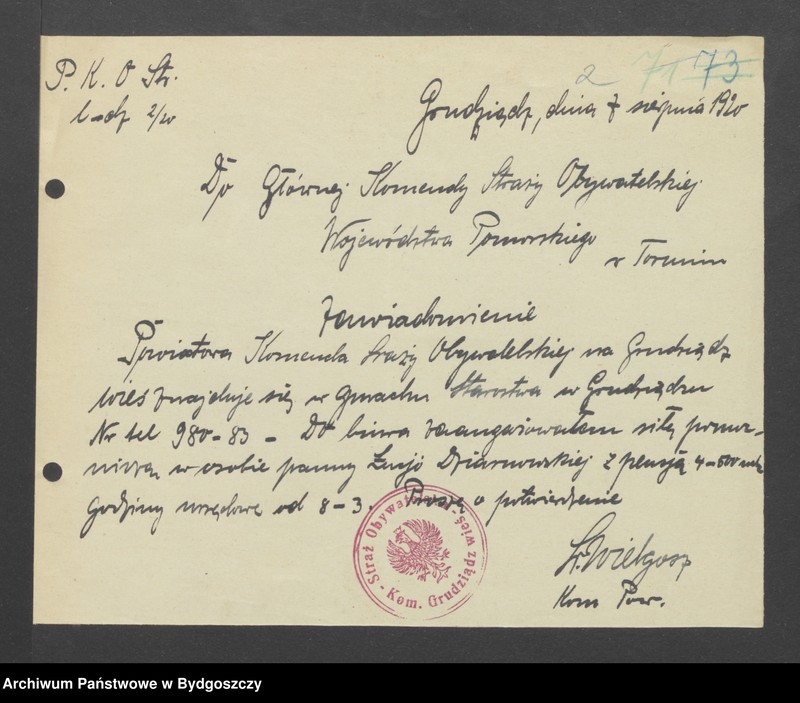 P. K. O Str.
l-dz 2/20
2 71 73
Grudziądz, dnia 7 sierpnia 1920
Do Głównej Komendy Straży Obywatelskiej
Województwa Pomorskiego
w Toruniu
Zawiadomienie
Powiatowa Komenda Straży Obywatelskiej na Grudziądz
wieś znajduje się w gmachu Starostwa w Grudziądzu
Nr tel 980-83 - Do biura zaangażowałem siłę pomoc-
niczą w osobie panny Dziarnowskiej z pensją
godziny urzędowe od 8-3. Proszę o potwierdzenie
Wielgosz
Kom Pow.
Straż Obywatelska
Kom. Grudziądz wieś
Archiwum Państwowe w Bydgoszczy